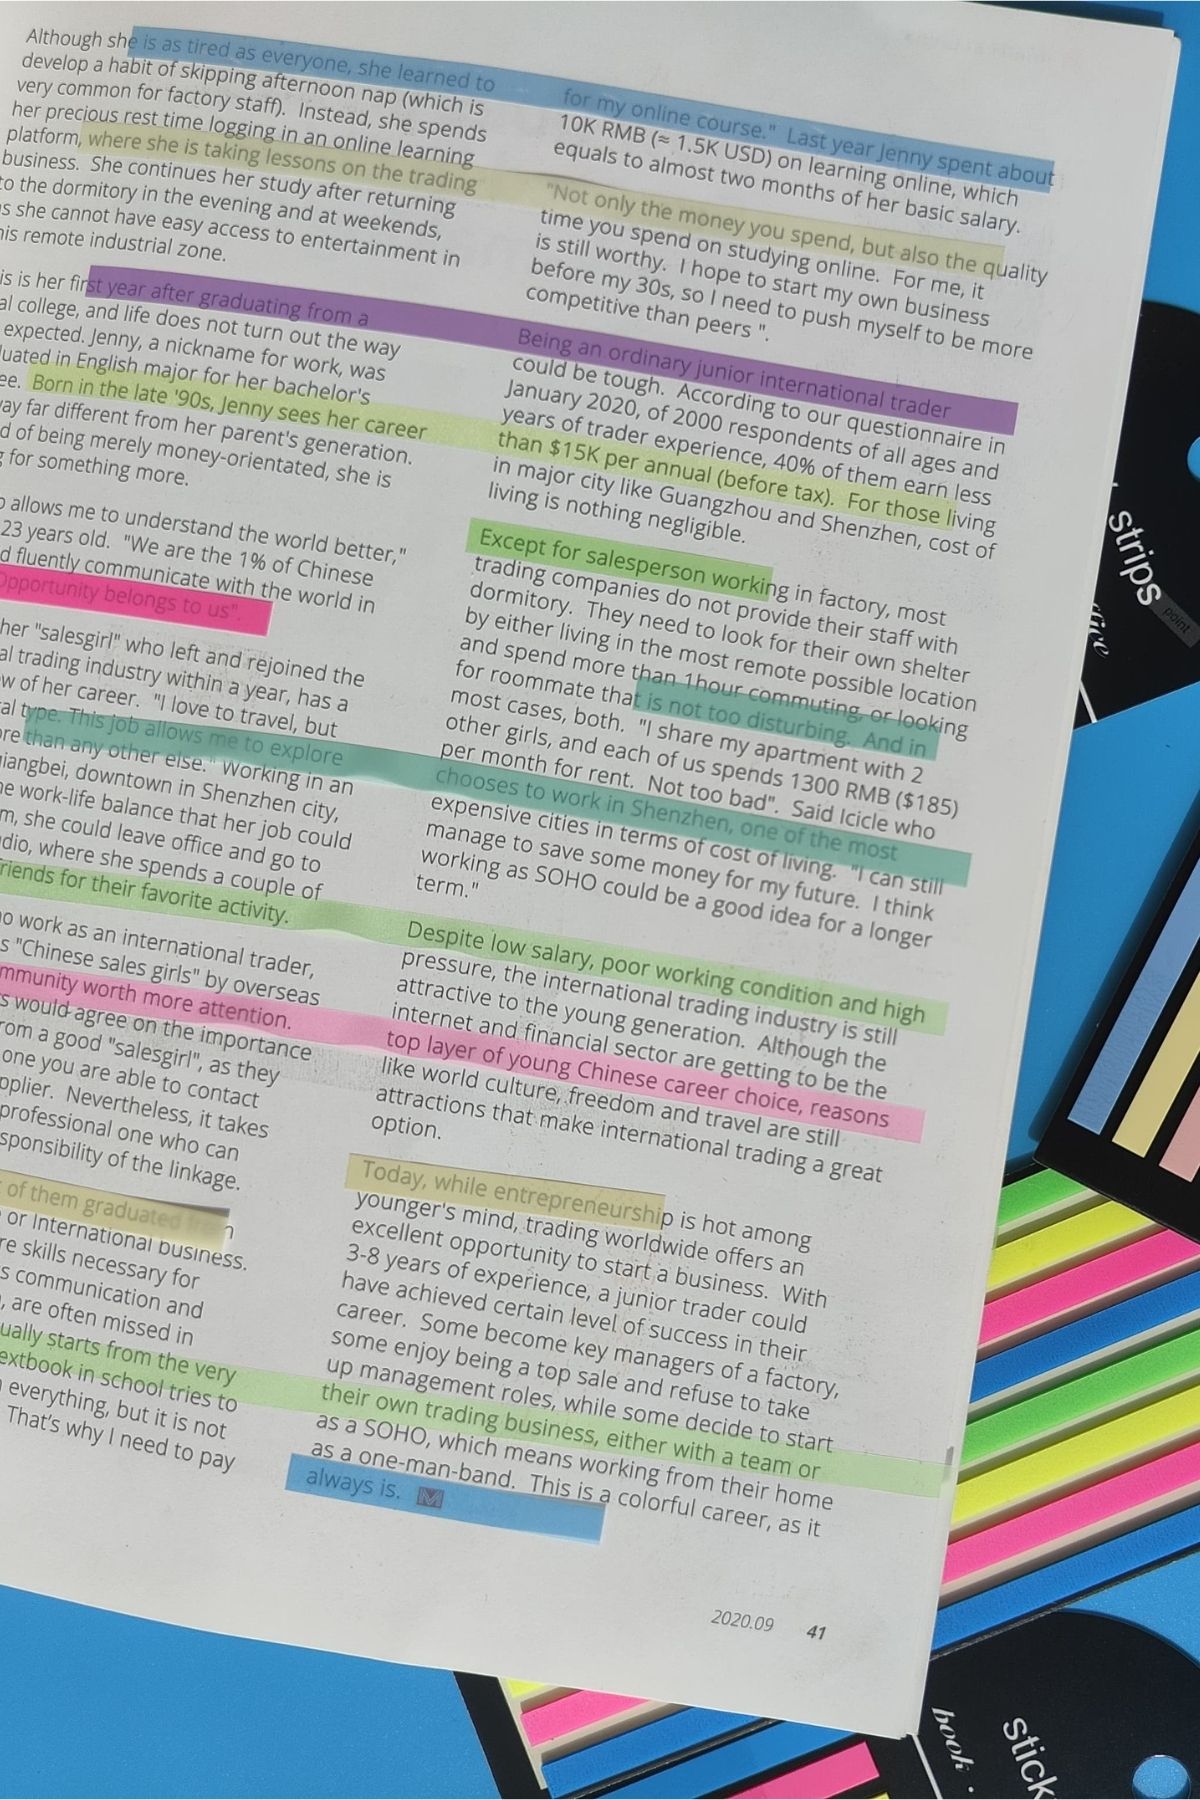 Although she is as tired as everyone, she learned to
develop a habit of skipping afternoon nap (which is
very common for factory staff). Instead, she spends
her precious rest time logging in an online learning
platform, where she is taking lessons on the trading
business. She continues her study after returning
to the dormitory in the evening and at weekends,
as she cannot have easy access to entertainment in
his remote industrial zone.
is is her first year after graduating from a
al college, and life does not turn out the way
expected. Jenny, a nickname for work, was
luated in English major for her bachelor's
ee. Born in the late '90s, Jenny sees her career
ay far different from her parent's generation.
d of being merely money-orientated, she is
g for something more.
allows me to understand the world better,"
23 years old. "We are the 1% of Chinese
d fluently communicate with the world in
Opportunity belongs to us".
her "salesgirl" who left and rejoined the
al trading industry within a year, has a
w of her career. "I love to travel, but
al type. This job allows me to explore
re than any other else." Working in an
iangbei, downtown in Shenzhen city,
e work-life balance that her job could
m, she could leave office and go to
dio, where she spends a couple of
riends for their favorite activity.
o work as an international trader,
s "Chinese sales girls" by overseas
mmunity worth more attention.
s would agree on the importance
rom a good "salesgirl", as they
one you are able to contact
pplier. Nevertheless, it takes
professional one who can
sponsibility of the linkage.
of them graduated
or International business.
re skills necessary for
s communication and
, are often missed in
ually starts from the very
extbook in school tries to
everything, but it is not
That's why I need to pay
for my online course." Last year Jenny spent about
10K RMB (≈ 1.5K USD) on learning online, which
equals to almost two months of her basic salary.
"Not only the money you spend, but also the quality
time you spend on studying online. For me, it
is still worthy. I hope to start my own business
before my 30s, so I need to push myself to be more
competitive than peers ".
Being an ordinary junior international trader
could be tough. According to our questionnaire in
January 2020, of 2000 respondents of all ages and
years of trader experience, 40% of them earn less
than $15K per annual (before tax). For those living
in major city like Guangzhou and Shenzhen, cost of
living is nothing negligible.
Except for salesperson working in factory, most
trading companies do not provide their staff with
dormitory. They need to look for their own shelter
by either living in the most remote possible location
and spend more than 1hour commuting, or looking
for roommate that is not too disturbing. And in
most cases, both. "I share my apartment with 2
other girls, and each of us spends 1300 RMB ($185)
per month for rent. Not too bad". Said Icicle who
chooses to work in Shenzhen, one of the most
expensive cities in terms of cost of living. "I can still
manage to save some money for my future. I think
working as SOHO could be a good idea for a longer
term."
Despite low salary, poor working condition and high
pressure, the international trading industry is still
attractive to the young generation. Although the
internet and financial sector are getting to be the
top layer of young Chinese career choice, reasons
like world culture, freedom and travel are still
attractions that make international trading a great
option.
Today, while entrepreneurship is hot among
younger's mind, trading worldwide offers an
excellent opportunity to start a business. With
3-8 years of experience, a junior trader could
have achieved certain level of success in their
career. Some become key managers of a factory,
some enjoy being a top sale and refuse to take
up management roles, while some decide to start
their own trading business, either with a team or
as a SOHO, which means working from their home
as a one-man-band. This is a colorful career, as it
always is. M
2020.09 41
strips
point
stick
book